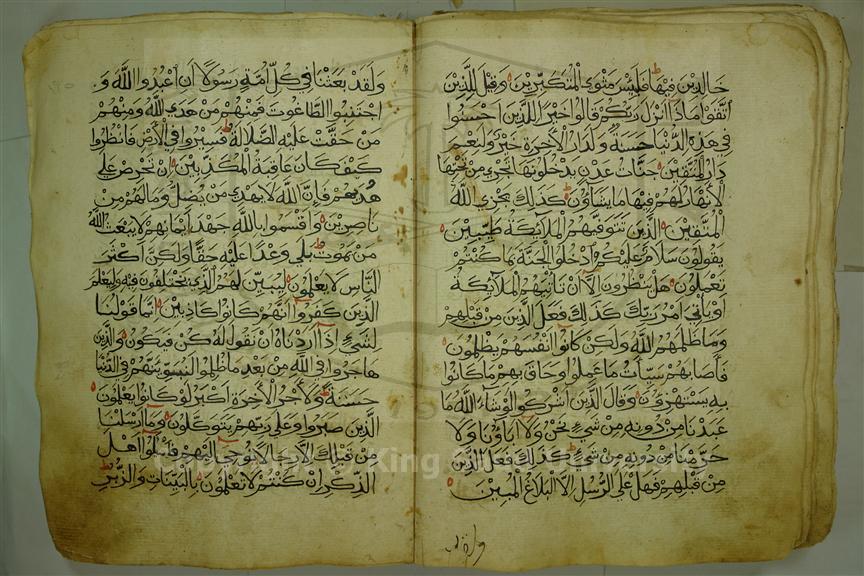 خالدين فيها فلبئس مثوى المتكبرين وقيل للذين
اتقوا ماذا انزل ربكم قالوا خيرا للذين احسنوا
في هذه الدنيا حسنة ولدار الآخرة خير ولنعم
دار المتقين جنات عدن يدخلونها تجري من تحتها
الأنهار لهم فيها ما يشاؤن كذلك يجزي الله
المتقين الذين تتوفيهم الملآئكة طيبين
يقولون سلام عليكم ادخلوا الجنة بما كنتم
تعملون هل ينظرون إلآ ان تأتيهم الملآئكة
او يأتي امر ربك كذلك فعل الذين من قبلهم
وما ظلمهم الله ولكن كانوا انفسهم يظلمون
فأصابهم سيآت ما عملوا وحاق بهم ما كانوا
به يستهزؤن وقال الذين اشركوا لو شآء الله ما
عبدنا من دونه من شيء نحن ولا اباؤنا ولا
حرمنا من دونه من شيء كذلك فعل الذين
من قبلهم فهل على الرسل إلا البلاغ المبين
ولقد
ولقد بعثنا في كل امة رسولا ان اعبدوا الله و
اجتنبوا الطاغوت فمنهم من هدى الله ومنهم
من حقت عليه الضلالة فسيروا في الأرض فانظروا
كيف كان عاقبة المكذبين ان تحرص على
هديهم فإن الله لا يهدي من يضل وما لهم من
ناصرين واقسموا بالله جهد ايمانهم لا يبعث الله
من يموت بلى وعدا عليه حقا ولكن اكثر
الناس لا يعلمون ليبين لهم الذي يختلفون فيه وليعلم
الذين كفروا انهم كانوا كاذبين انما قولنا
لشيء اذآ اردناه ان نقول له كن فيكون والذين
هاجروا في الله من بعد ما ظلموا لنبوئنهم في الدنيا
حسنة ولأجر الآخرة اكبر لو كانوا يعلمون
الذين صبروا وعلى ربهم يتوكلون ومآ ارسلنا
من قبلك إلا رجالا نوحي اليهم فاسئلوآ اهل
الذكر ان كنتم لا تعلمون بالبينات والزبر